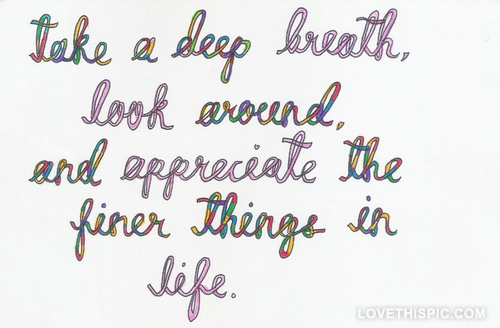 take a deep breath,
look around,
and appreciate the
finer things in
life.
LOVETHISPIC.COM